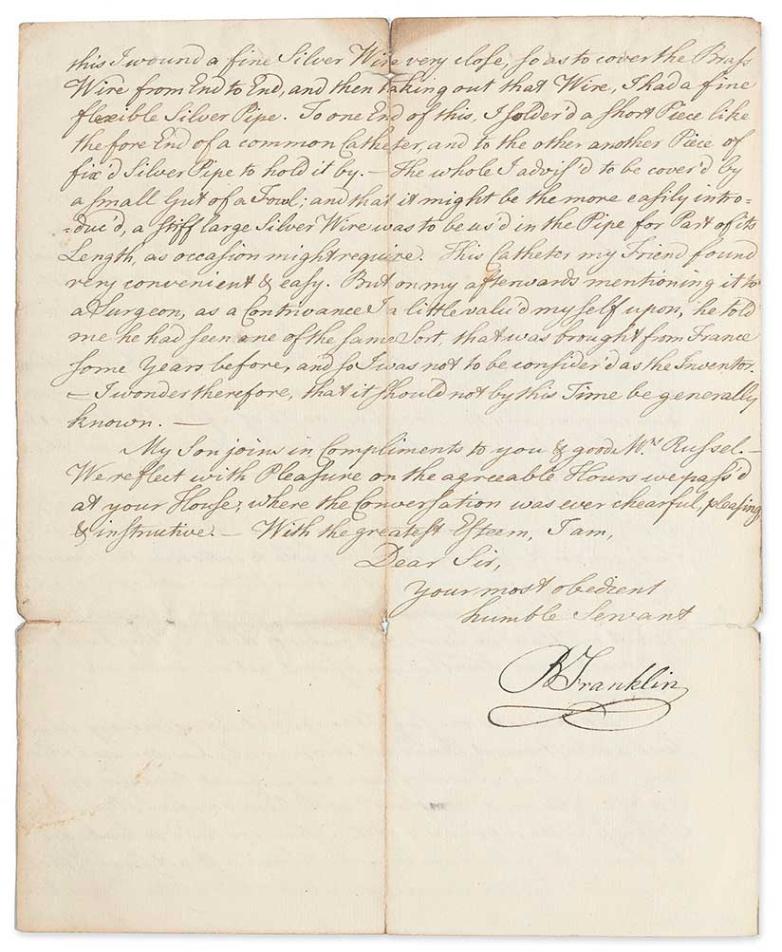 this I wound a fine Silver Wire very close, so as to cover the Brass
Wire from End to End, and then taking out that Wire, I had a fine
flexible Silver Pipe. To one End of this, I solder'd a short Piece like
the fore End of a common Catheter, and to the other another Piece of
fix'd Silver Pipe to hold it by. — The whole I advis'd to be cover'd by
a small Gut of a Fowl; and that it might be the more easily intro=
=duc'd, a stiff large Silver Wire was to be us'd in the Pipe for Part of its
Length, as occasion might require. This Catheter my Friend found
very convenient & easy. But on my afterwards mentioning it to
a Surgeon, as a Contrivance I a little valu'd my self upon, he told
me he had seen one of the same Sort, that was brought from France
some Years before, and so I was not to be consider'd as the Inventor.
— I wonder therefore, that it should not by this Time be generally
known. —
My Son joins in Compliments to you & good Mrs Russel. —
We reflect with Pleasure on the agreeable Hours we pass'd
at your House; where the Conversation was ever chearful, pleasing
& instructive. — With the greatest Esteem, I am,
Dear Sir,
your most obedient
humble Servant
B Franklin